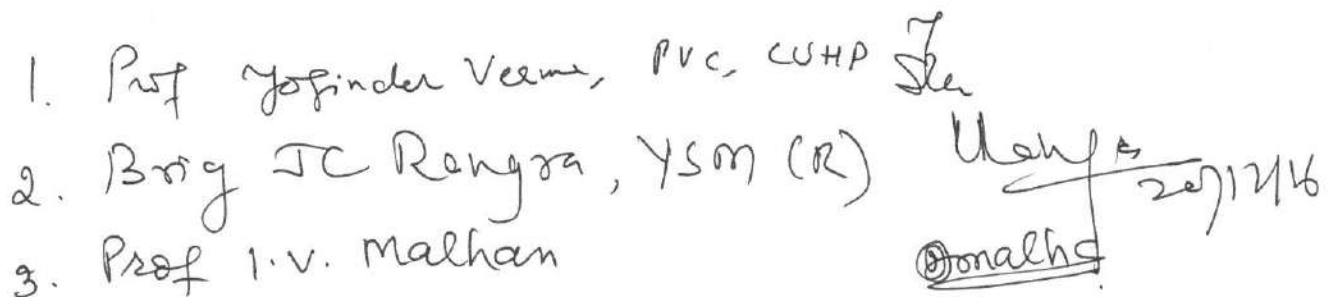 1. Prof Yoginder Verma, PVC, CUHP
2. Brig JC Rangra, YSM (R) 20/12/16
3. Prof I.V. Malhan